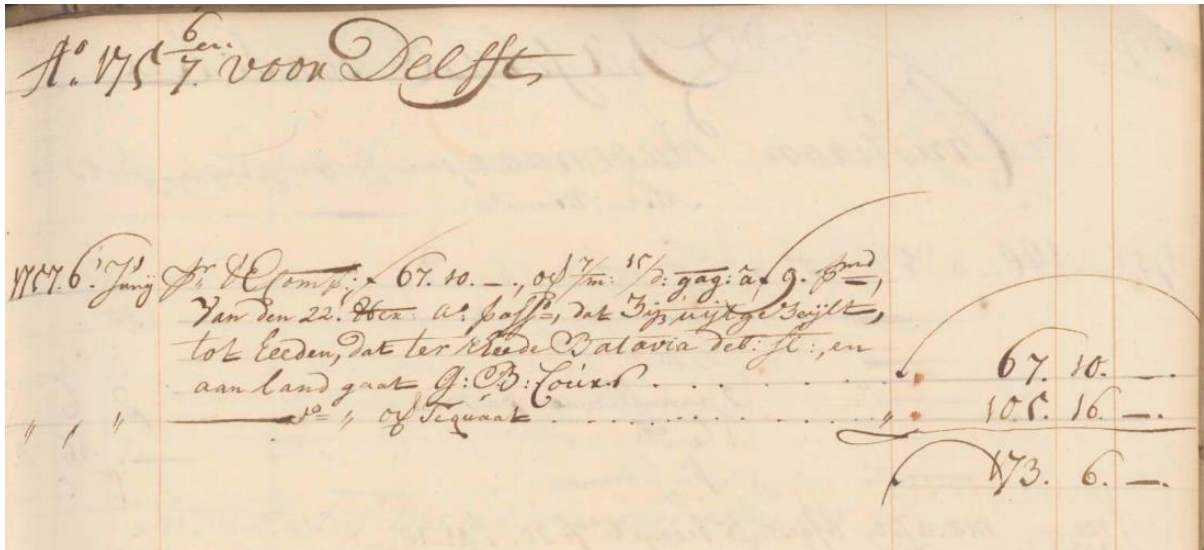 A:o 175 6/7. en. voor Delfft
1757. 6' Junij P:r d'E Comp:; ƒ 67. 10. —., of 7/m: 15/d: gag: à ƒ 9. p:r m:d,
Van den 22: a:o pass:o, dat Zij uijtge Zeijlt,
tot heeden, dat ter Rheede Batavia deb: st:, en
aan land gaat G: B: Cours . . . . . . . . . . 67. 10. —.
" " " d:o " of Tequaat . . . . . . . . . . . . " 105. 16. —.
173. 6. —.